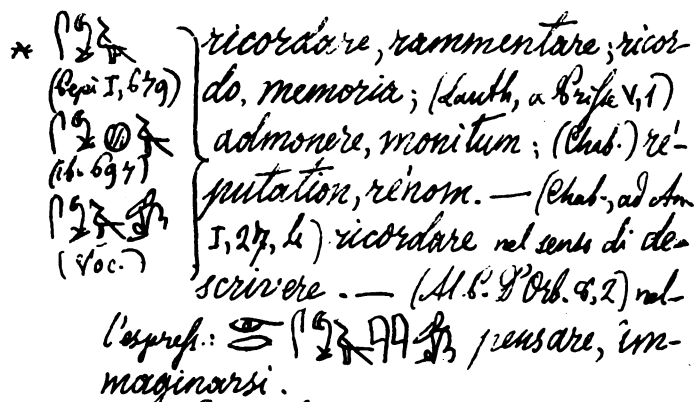 * 𓋴𓐍𓄿 ricordare, rammentare; ricor-
(Pepi I, 679) do, memoria; (Lauth, a Prisse V, 1)
admonere, monitum; (Chab.) ré-
(ib. 697) putation, rénom. — (Chab., ad Am
I, 27, b) ricordare nel senso di de-
(Voc.)
scrivere. — (Al P. D'Orb. 8, 2) nel-
l'espress.: pensare, im-
maginarsi.